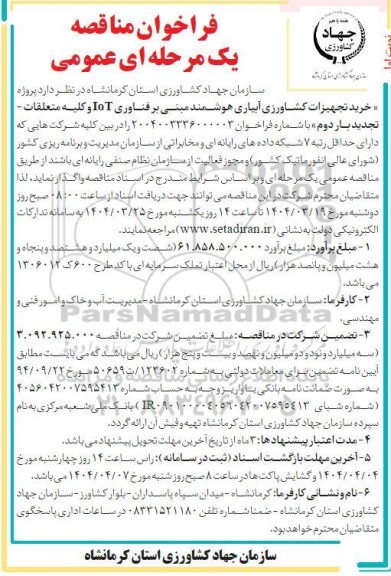 نوبت اول
همه با هم
جهاد
کشاورزی
سازمان جهاد کشاورزی استان کرمانشاه
فراخوان مناقصه
یک مرحله ای عمومی
سازمان جهاد کشاورزی استان کرمانشاه در نظر دارد پروژه
« خرید تجهیزات کشاورزی آبیاری هوشمند مبنی بر فناوری IoT و کلیه متعلقات -
تجدید بار دوم » با شماره فراخوان ۲۰۰۴۰۰۳۳۳۶۰۰۰۰۰۳ را در بین کلیه شرکت هایی که
دارای حداقل رتبه ۷ شبکه داده های رایانه ای و مخابراتی از سازمان مدیریت و برنامه ریزی کشور
(شورای عالی انفورماتیک کشور) و مجوز فعالیت از سازمان نظام صنفی رایانه ای باشند از طریق
مناقصه عمومی یک مرحله ای و بر اساس شرایط مندرج در اسناد مناقصه واگذار نماید، لذا
متقاضیان محترم شرکت در این مناقصه می توانند جهت دریافت اسناد از ساعت ۰۸:۰۰ صبح روز
دوشنبه مورخ ۱۴۰۴/۰۳/۱۹ تا ساعت ۱۴ روز یکشنبه مورخ ۱۴۰۴/۰۳/۲۵ به سامانه تدارکات
الکترونیکی دولت به نشانی (www.setadiran.ir) مراجعه نمایند.
۱- مبلغ برآورد: مبلغ برآورد ۶۱.۸۵۸.۵۰۰.۰۰۰ (شصت و یک میلیارد و هشتصد و پنجاه و
هشت میلیون و پانصد هزار) ریال از محل اعتبار تملک سرمایه ای با کد طرح ۶۰۰ ک ۱۳۰۶۰۱۲
می باشد.
۲- کارفرما: سازمان جهاد کشاورزی استان کرمانشاه - مدیریت آب و خاک و امور فنی و
مهندسی.
۳- تضمین شرکت در مناقصه: مبلغ تضمین شرکت در مناقصه ۳.۰۹۲.۹۲۵.۰۰۰
(سه میلیارد و نود و دو میلیون و نهصد و بیست و پنج هزار) ریال می باشد که می بایست مطابق
آیین نامه تضمین برای معاملات دولتی به شماره ۱۲۳۴۰۲/ت۵۰۶۵۹ه مورخ ۹۴/۰۹/۲۲
به صورت ضمانت نامه بانکی یا واریز وجه به حساب شماره ۴۰۵۶۰۴۲۰۰۷۵۹۵۴۱۳
(شماره شبای) بانک ملی شعبه مرکزی به نام
سپرده سازمان جهاد کشاورزی استان کرمانشاه تهیه و فیش آن ارائه گردد.
۴- مدت اعتبار پیشنهادها: ۳ ماه از تاریخ آخرین مهلت تحویل پیشنهاد می باشد.
۵- آخرین مهلت بازگشت اسناد (ثبت در سامانه): راس ساعت ۱۴ روز چهارشنبه مورخ
۱۴۰۴/۰۴/۰۴ و گشایش پاکت ها در ساعت ۸ صبح روز شنبه مورخ ۱۴۰۴/۰۴/۰۷ می باشد.
۶- نام و نشانی کارفرما: کرمانشاه - میدان سپاه پاسداران - بلوار کشاورز - سازمان جهاد
کشاورزی استان کرمانشاه - ضمنا شماره تلفن ۰۸۳۳۱۵۲۱۱۸۰ در ساعات اداری پاسخگوی
متقاضیان محترم خواهد بود.
سازمان جهاد کشاورزی استان کرمانشاه
ParsNamadData